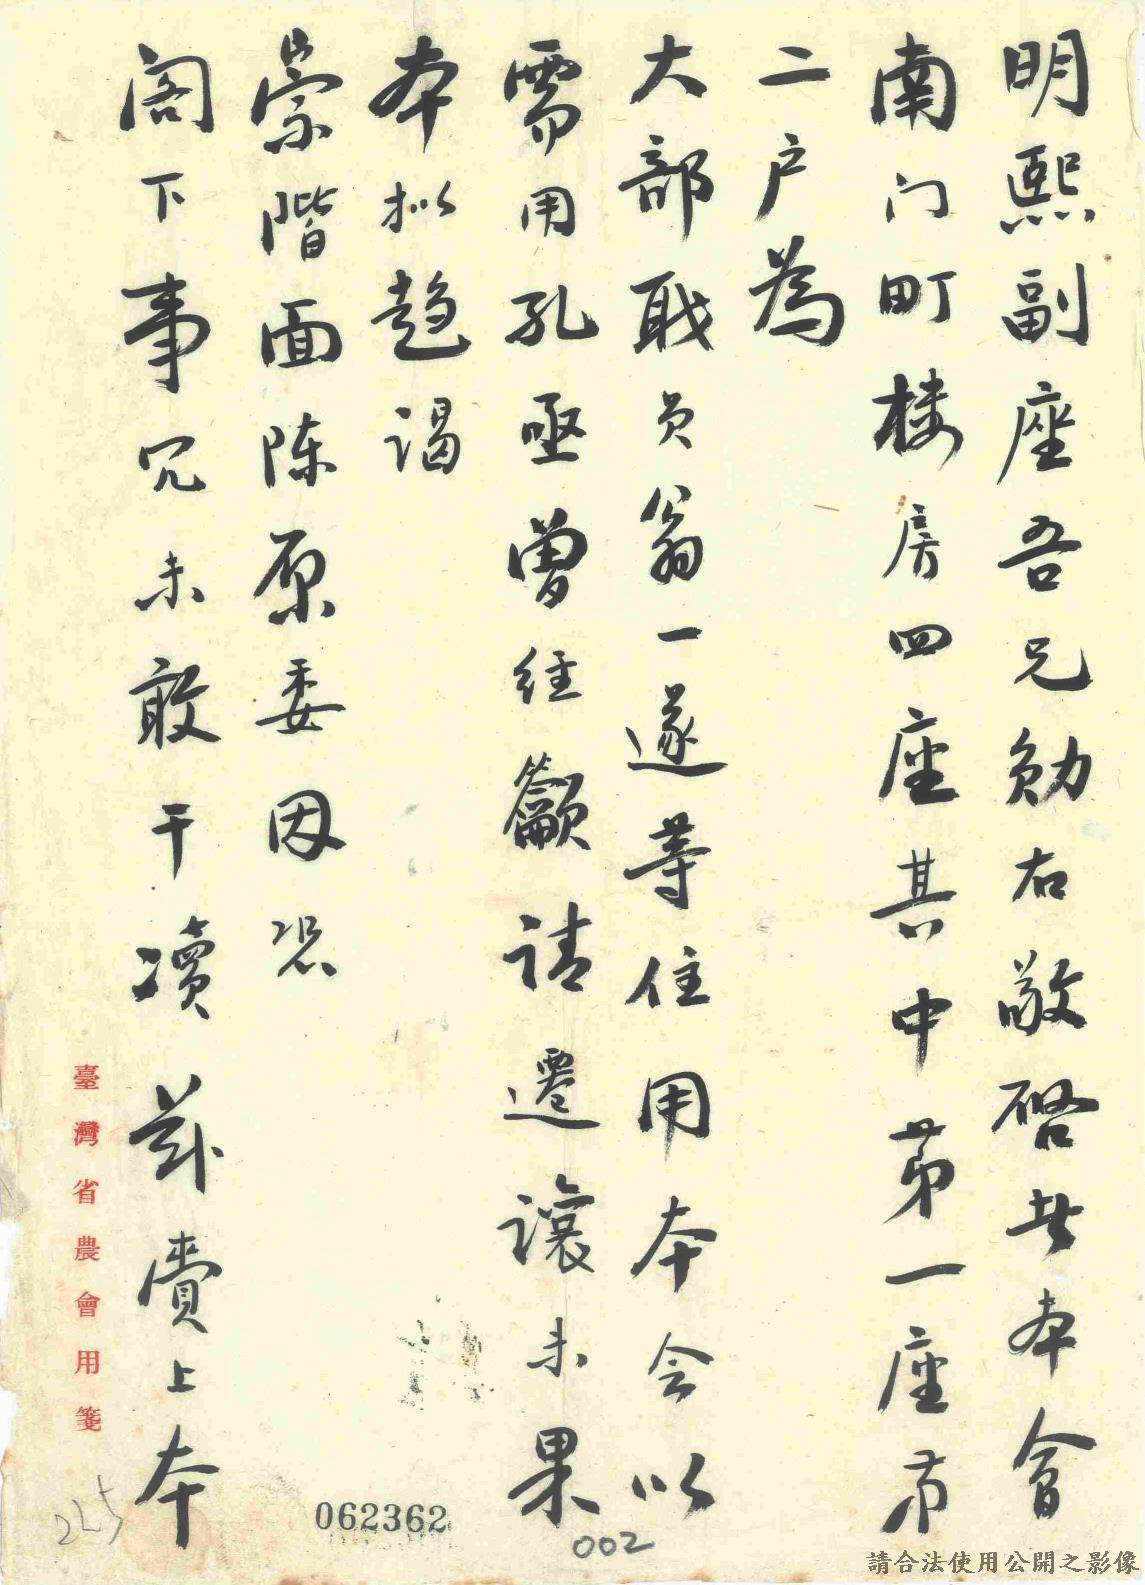 明熙副座吾兄勋右敬啓者本會
南门町楼房四座其中第一座苐
二户為
大部戢员翁一遂等住用本会以
需用孔亟曾经籲请遷讓未果
本拟趋谒
崇階面陈原委因恐
阁下事冗未敢干瀆兹賫上本
臺灣省農會用箋
225
062362
002
請合法使用公開之影像